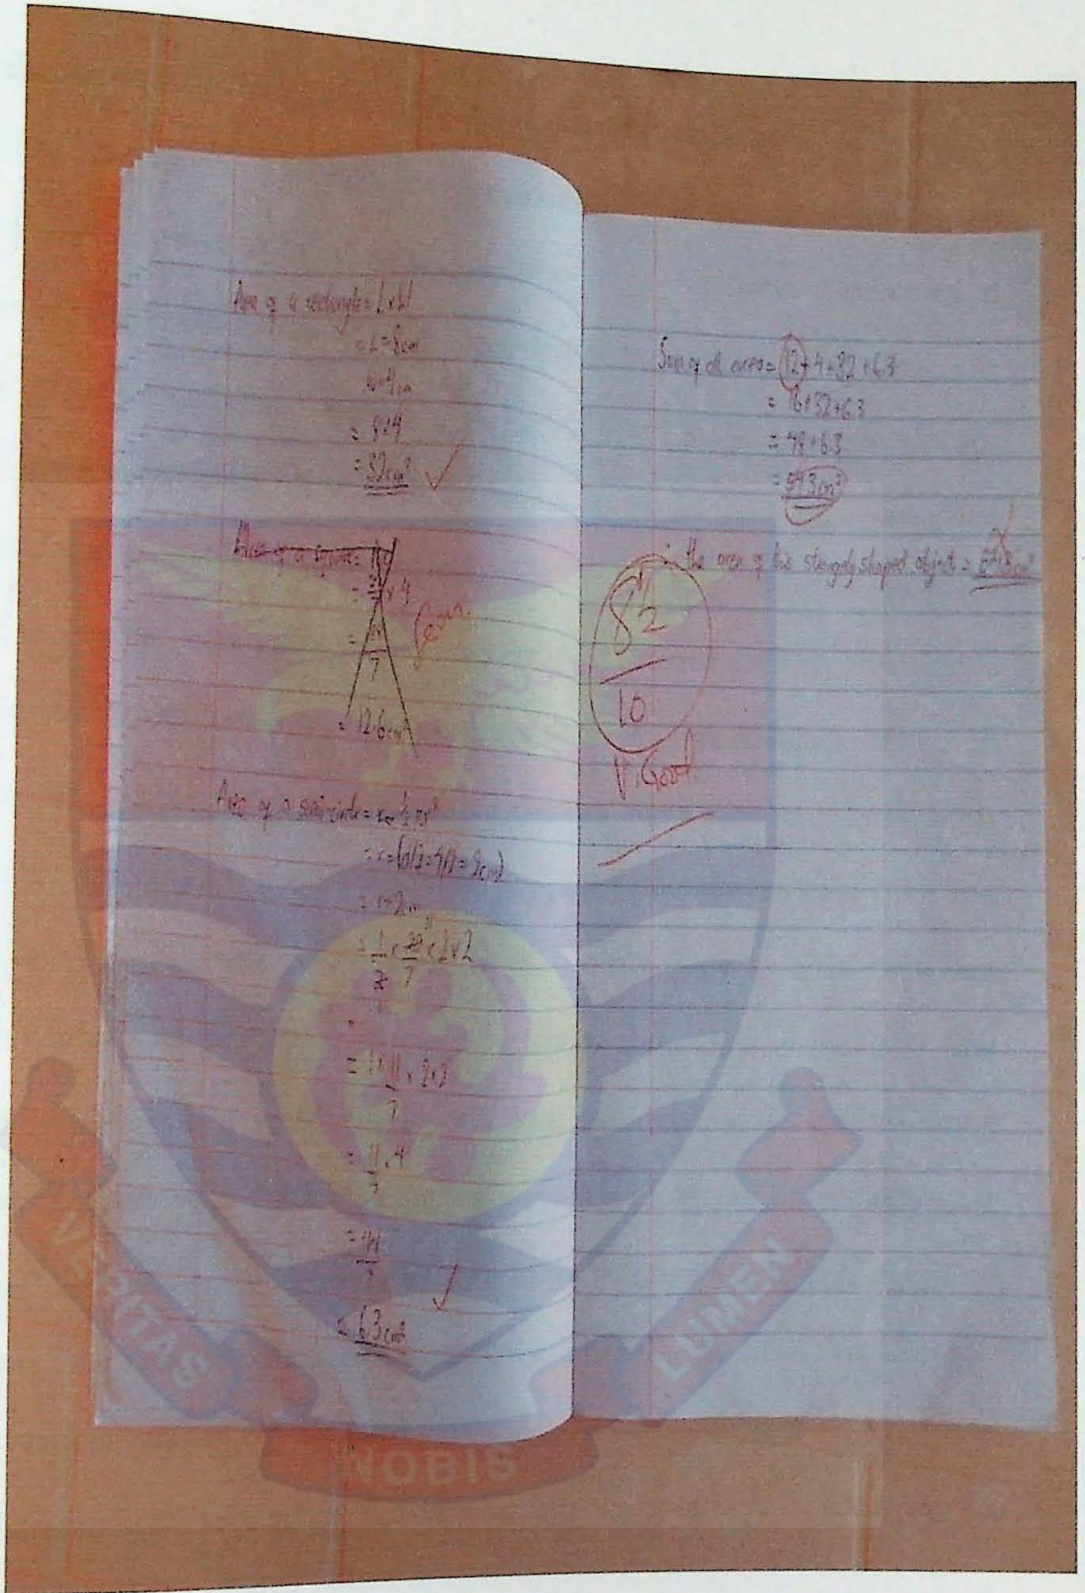 Area of a rectangle = L x W
= L = 8cm
W = 4cm
= 8x4
= 32cm²
Area of a square =
x 4
7
= 12.6cm²
Area of a semi circle = ½ πr²
= r =
= r = 2cm
= 1/2 x 22/7 11 x 2 x 2
= 1 x 11/7 x 2x2
= 11/7 x 4
= 44/7
= 6.3cm²
Sum of all area = 12 + 4 + 32 + 6.3
= 16+32+6.3
= 48+6.3
= 54.3cm²
the area of this strangely shaped object =
8½
10
V. Good
VERITAS
NOBIS
LUMEN